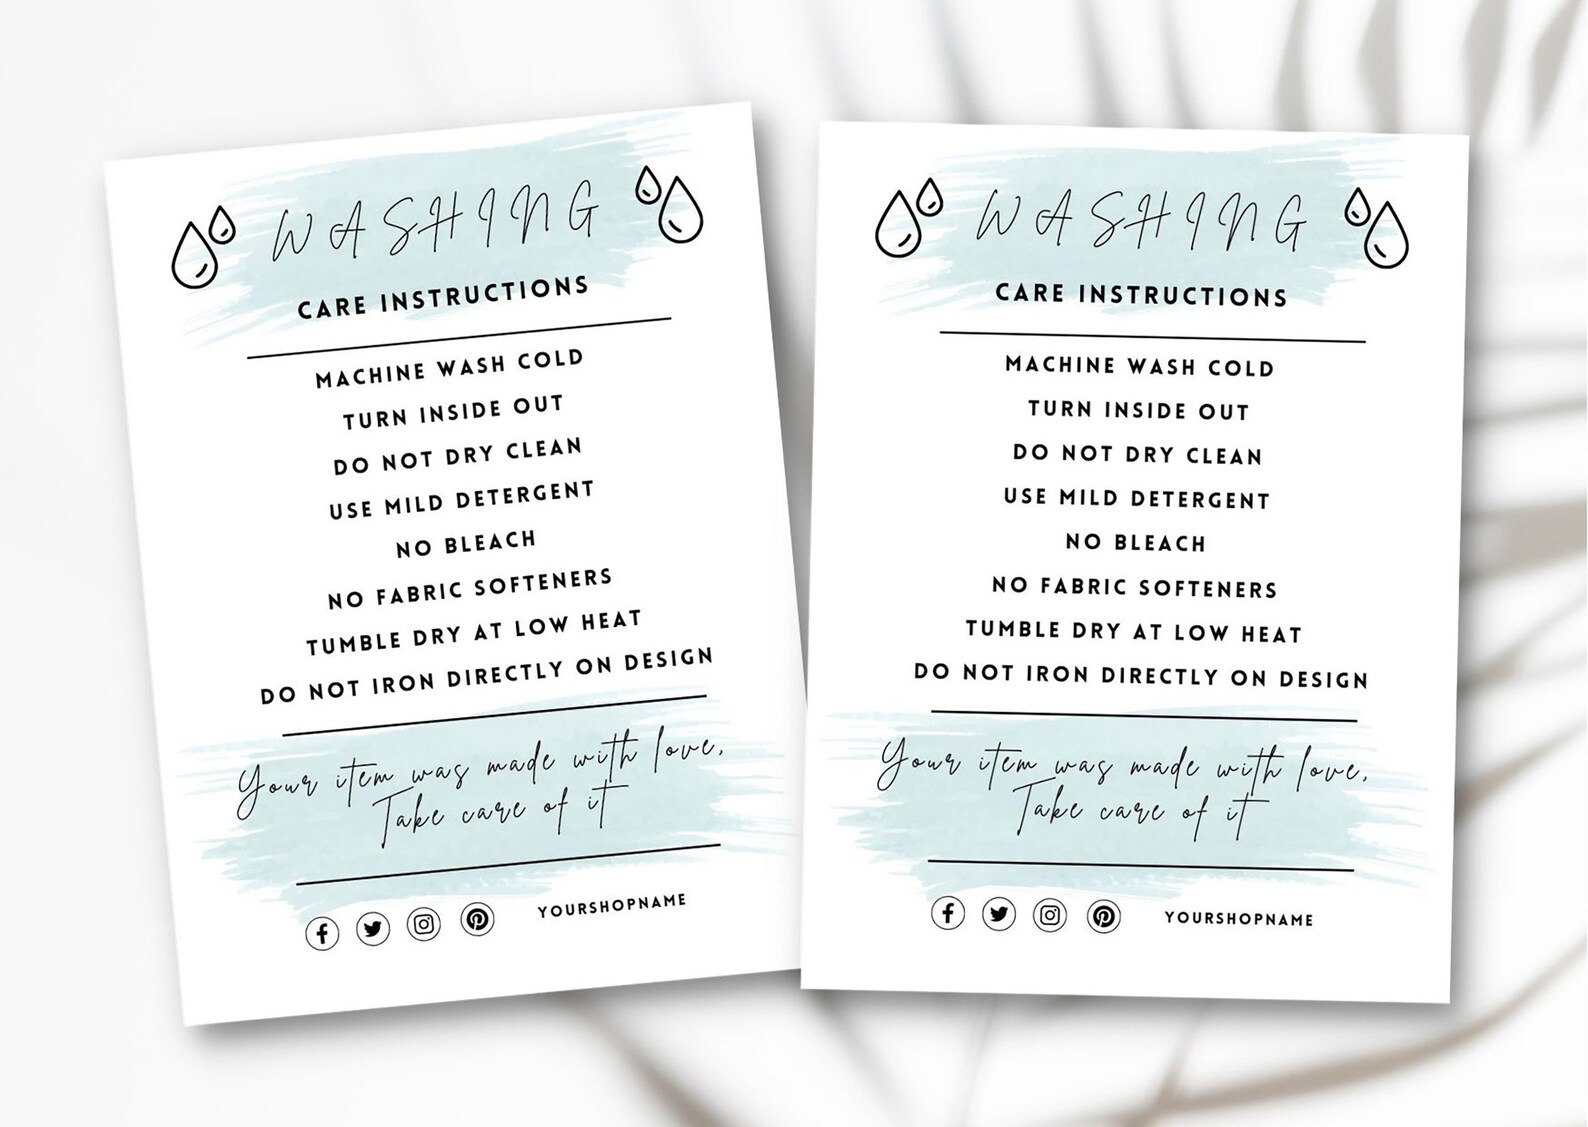 WASHING
CARE INSTRUCTIONS
MACHINE WASH COLD
TURN INSIDE OUT
DO NOT DRY CLEAN
USE MILD DETERGENT
NO BLEACH
NO FABRIC SOFTENERS
TUMBLE DRY AT LOW HEAT
DO NOT IRON DIRECTLY ON DESIGN
Your item was made with love,
Take care of it
YOURSHOPNAME
WASHING
CARE INSTRUCTIONS
MACHINE WASH COLD
TURN INSIDE OUT
DO NOT DRY CLEAN
USE MILD DETERGENT
NO BLEACH
NO FABRIC SOFTENERS
TUMBLE DRY AT LOW HEAT
DO NOT IRON DIRECTLY ON DESIGN
Your item was made with love,
Take care of it
YOURSHOPNAME